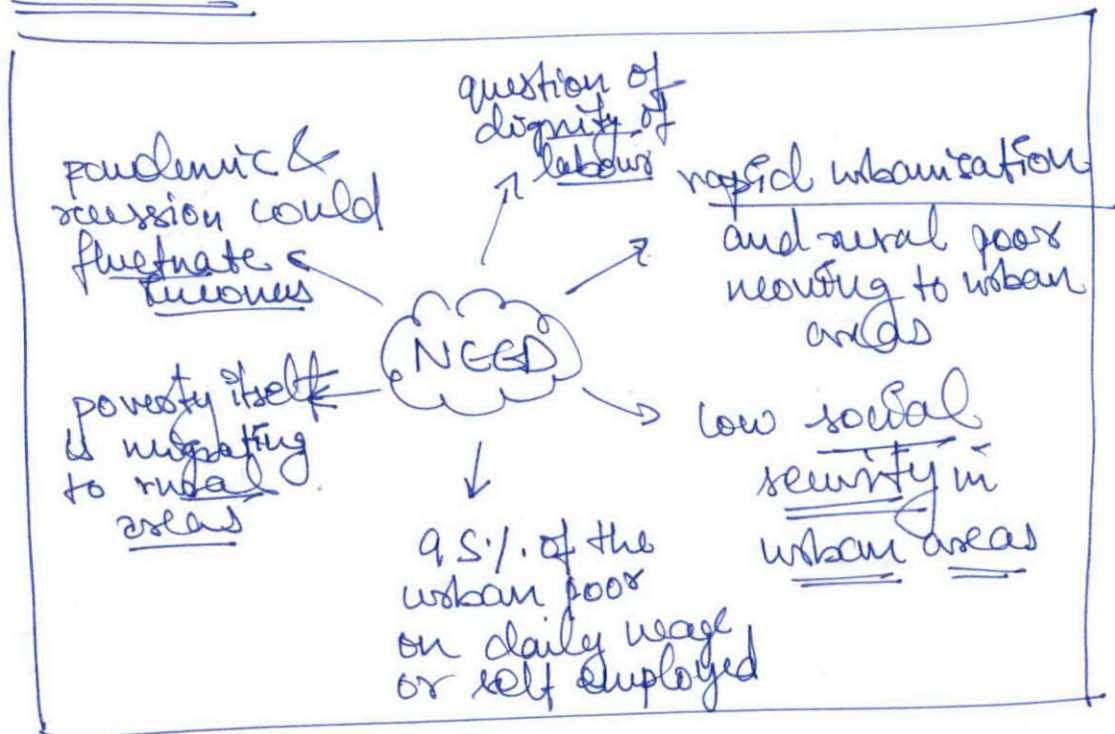 question of
dignity of
labour
pandemic &
recession could
fluctuate
incomes
rapid urbanisation
and rural poor
moving to urban
areas
NEED
poverty itself
is migrating
to rural
areas
low social
security in
urban areas
95% of the
urban poor
on daily wage
or self employed